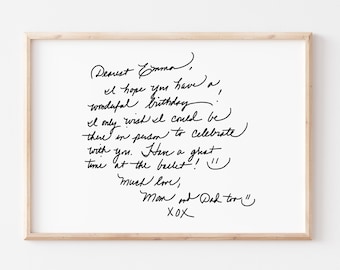 Dearest Emma,
I hope you have a
wonderful birthday!
I only wish I could be
there in person to celebrate
with you. Have a great
time at the ballet! :)
Much love,
Mom and Dad too :)
XOX